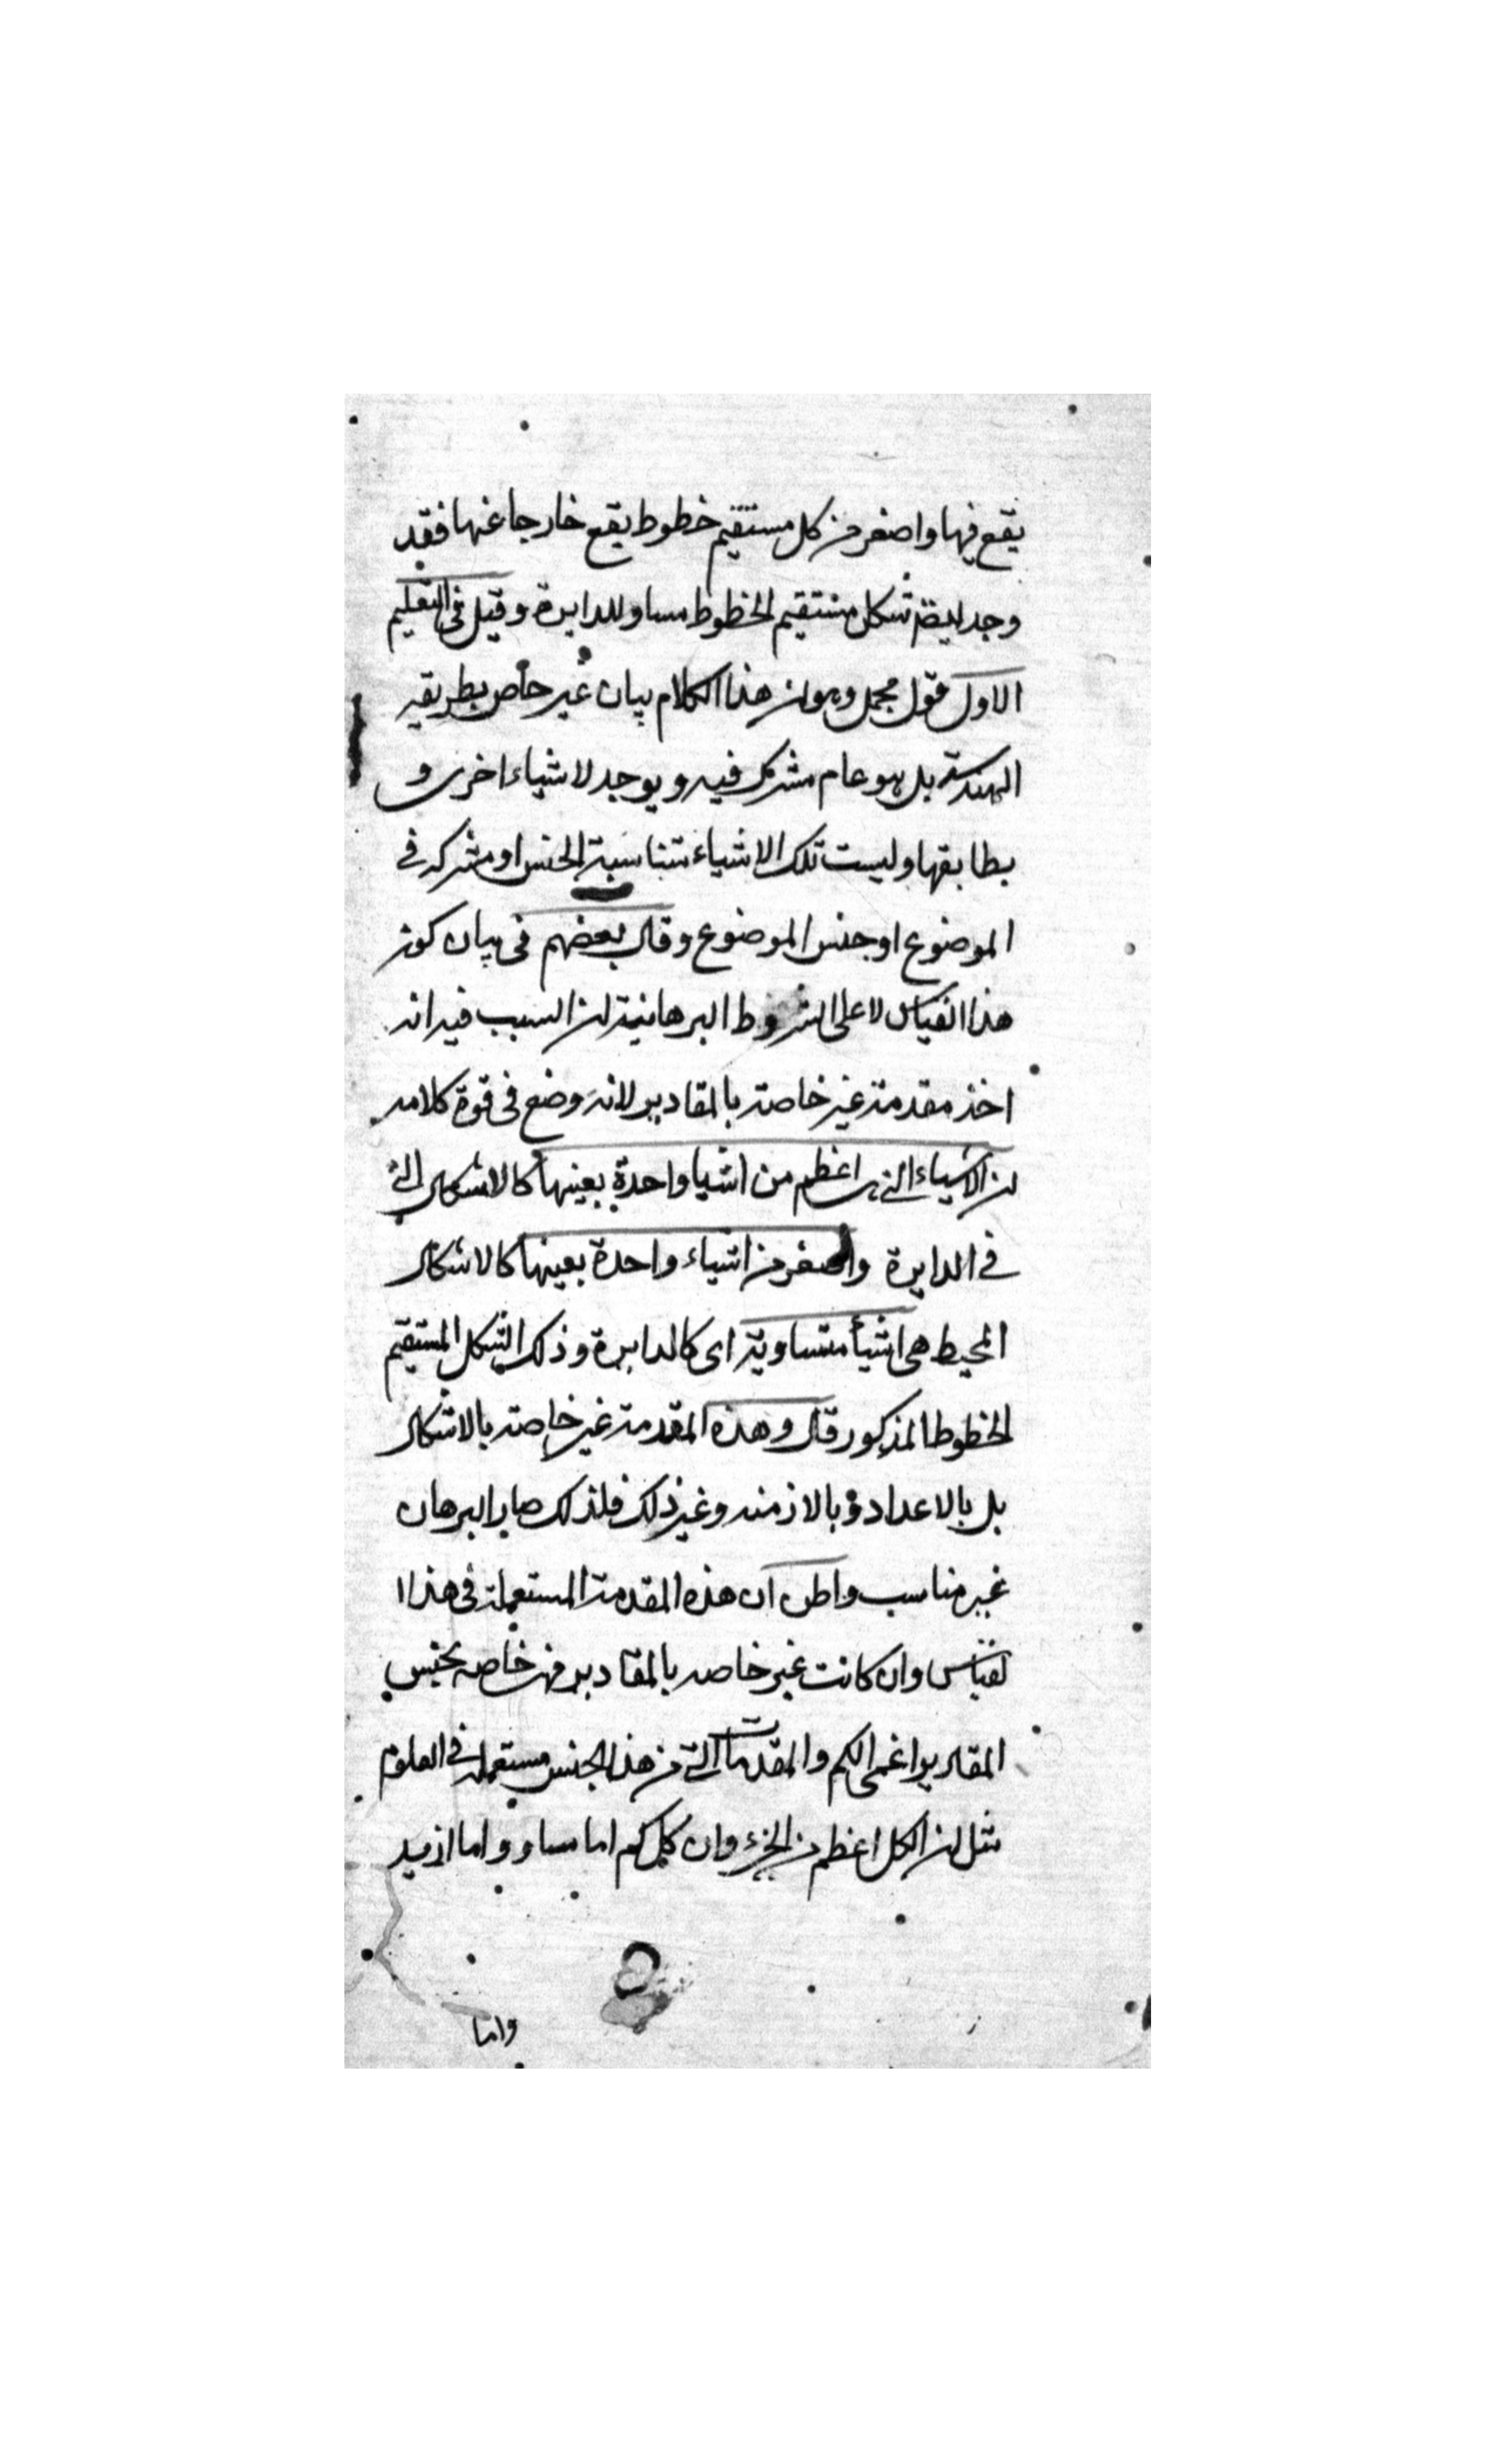 يقع فيها واصغر من كل مستقيم خطوط يقع خارجا عنها فقد
وجد ايضا شكل مستقيم الخطوط مساو للدايرة وقيل فى التعليم
الاول قول مجمل وهو ان هذا الكلام بيان غير خاص بطريقه
الهندسة بل هو عام مشترك فيه ويوجد لاشياء اخرى و
يطابقها وليست تلك الاشياء متناسبة الجنس او مشتركه فى
الموضوع او جنس الموضوع وقال بعضهم فى بيان كون
هذا القياس لا على الشروط البرهانية ان السبب فيه انه
اخذ مقدمة غير خاصة بالمقادير لانه وضع فى قوة كلامه
ان الاشياء التى هى اعظم من اشيا واحدة بعينها كالاشكال التى
فى الدايرة واصغر من اشياء واحدة بعينها كالاشكال
المحيط هى اشيأ متساوية اى كالدايرة وذلك الشكل المستقيم
الخطوط المذكور قال وهذه المقدمة غير خاصة بالاشكال
بل بالاعداد وبالازمنه وغير ذلك فلذلك صار البرهان
غير مناسب واظن ان هذه المقدمة المستعملة فى هذا ا
لقياس وان كانت غير خاصه بالمقادير فهى خاصه بجنس
المقادير اعنى الكم والمقدمات التى من هذا الجنس مستعمله فى العلوم
مثل ان الكل اعظم من الجزء وان كل كم اما مساو واما ازيد
واما